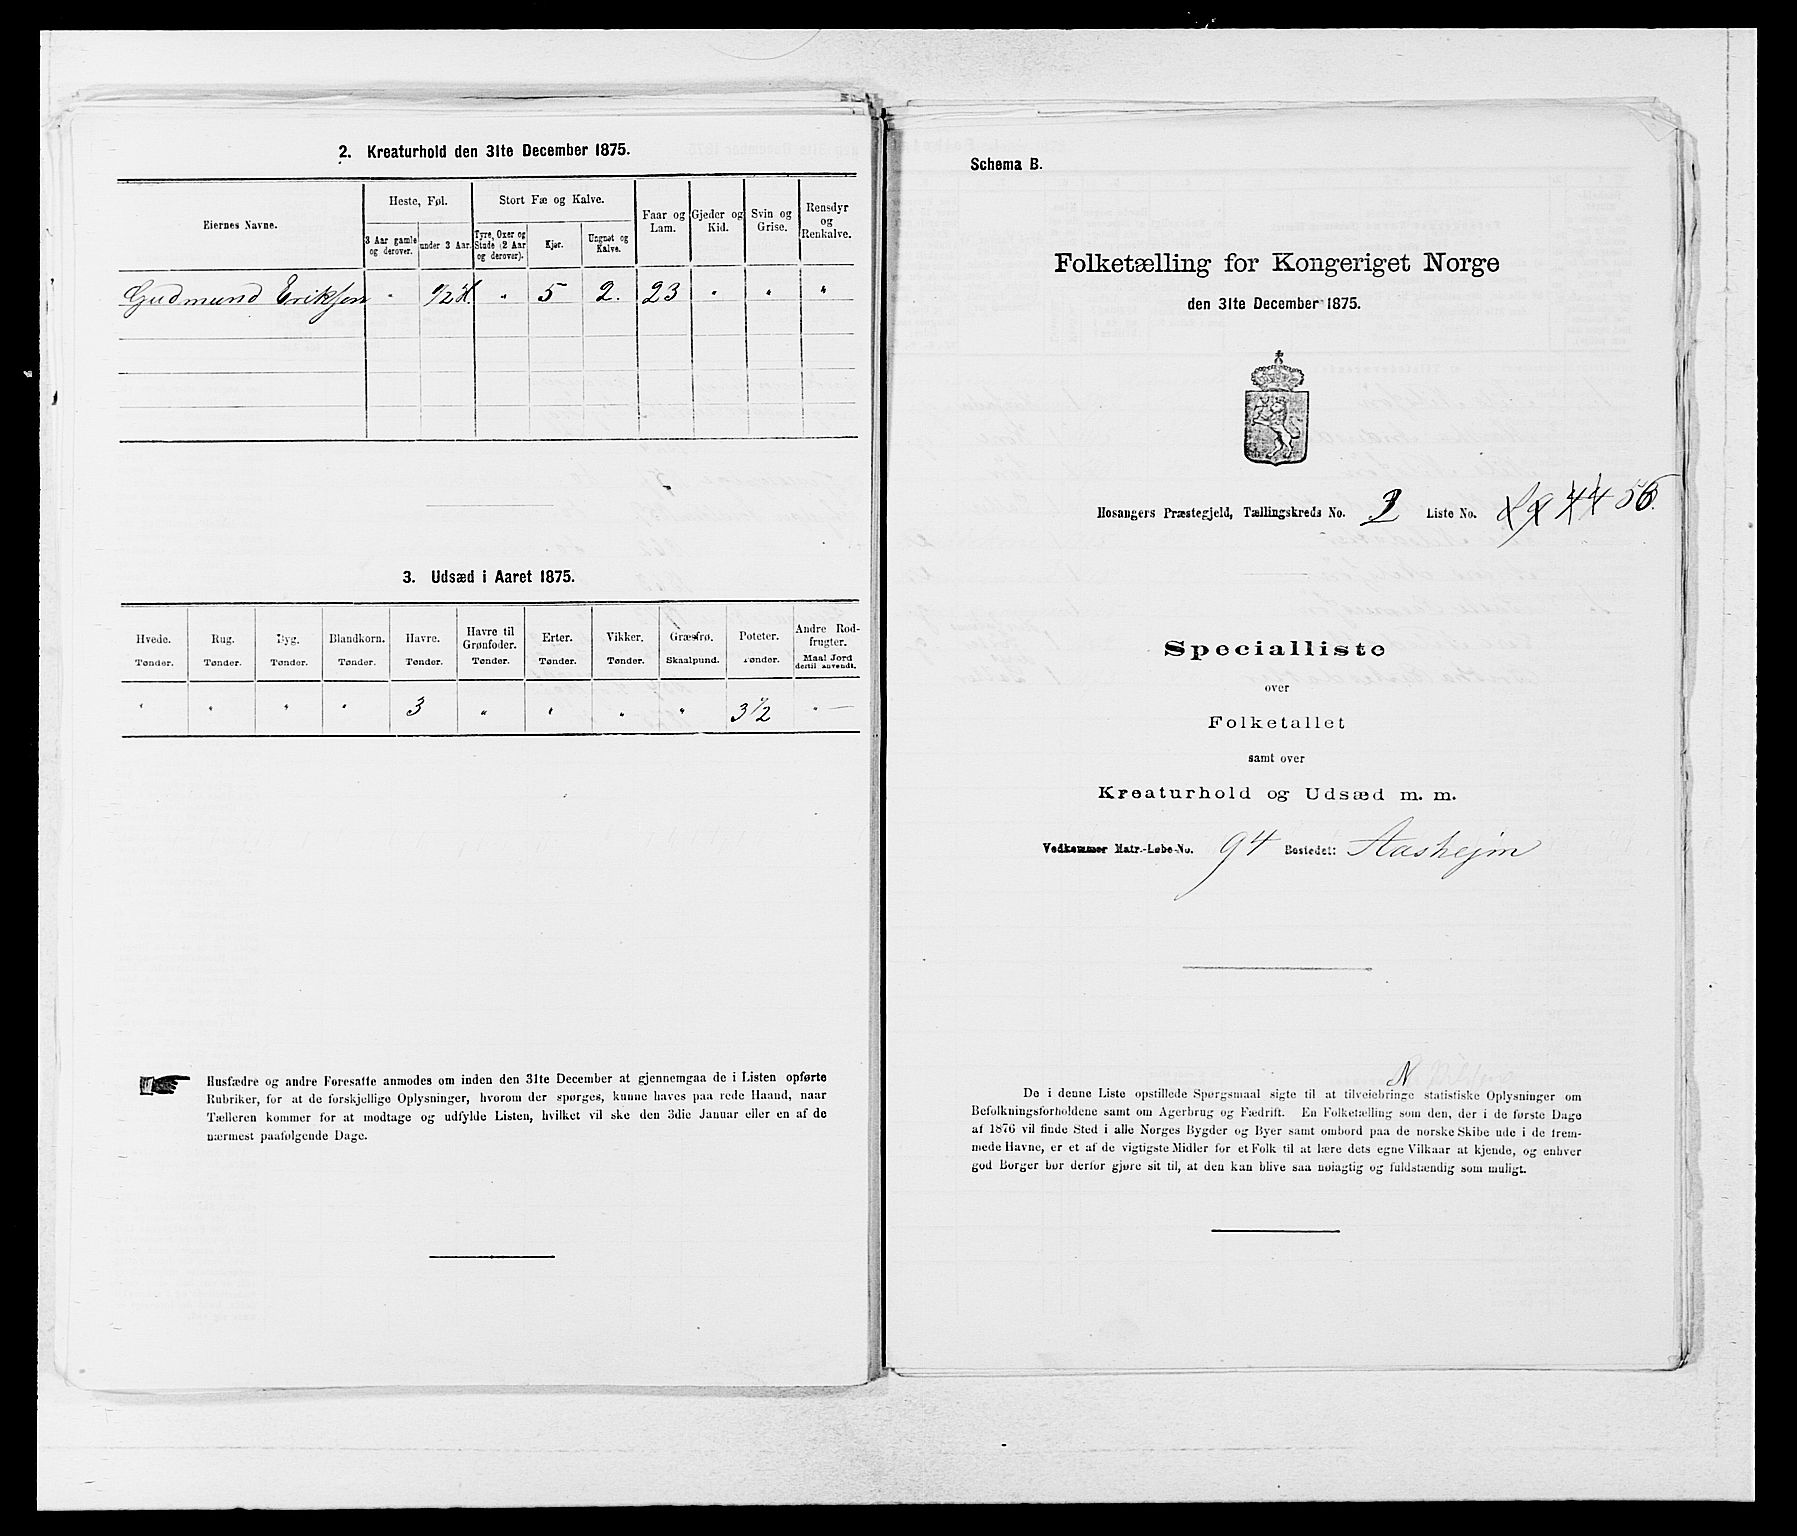 2. Kreaturhold den 31te December 1875.
Eiernes Navne.
Heste, Føl.
3 Aar gamle og derover.
under 3 Aar.
Stort Fæ og Kalve.
Tyre, Oxer og Stude (2 Aar og derover).
Kjør.
Ungnøt og Kalve.
Faar og Lam.
Gjeder og Kid.
Svin og Grise.
Rensdyr og Renkalve.
Gudmund Eriksen " 1/2 " 5 2. 23 " " "
3. Udsæd i Aaret 1875.
Hvede. Rug. Byg. Blandkorn. Havre. Havre til Grønfoder. Erter. Vikker. Græsfrø. Poteter. Andre Rodfrugter.
Tønder. Tønder. Tønder. Tønder. Tønder. Tønder. Tønder. Tønder. Skaalpund. Tønder. Maal Jord dertil anvendt.
" " " " 3 " " " " 3 1/2 " —
Husfædre og andre Foresatte anmodes om inden den 31te December at gjennemgaa de i Listen opførte
Rubriker, for at de forskjellige Oplysninger, hvorom der spørges, kunne haves paa rede Haand, naar
Tælleren kommer for at modtage og udfylde Listen, hvilket vil ske den 3die Januar eller en af de
nærmest paafølgende Dage.
Schema B.
Folketælling for Kongeriget Norge
den 31te December 1875.
Hosangers Præstegjeld, Tællingskreds No. 2 Liste No. 44 56.
Specialliste
over
Folketallet
samt over
Kreaturhold og Udsæd m. m.
Vedkommer Matr.-Løbe-No. 94 Bostedet: Aashejm
De i denne Liste opstillede Spørgsmaal sigte til at tilveiebringe statistiske Oplysninger om
Befolkningsforholdene samt om Agerbrug og Fædrift. En Folketælling som den, der i de første Dage
af 1876 vil finde Sted i alle Norges Bygder og Byer samt ombord paa de norske Skibe ude i de frem-
mede Havne, er et af de vigtigste Midler for et Folk til at lære dets egne Vilkaar at kjende, og enhver
god Borger bør derfor gjøre sit til, at den kan blive saa nøiagtig og fuldstændig som muligt.